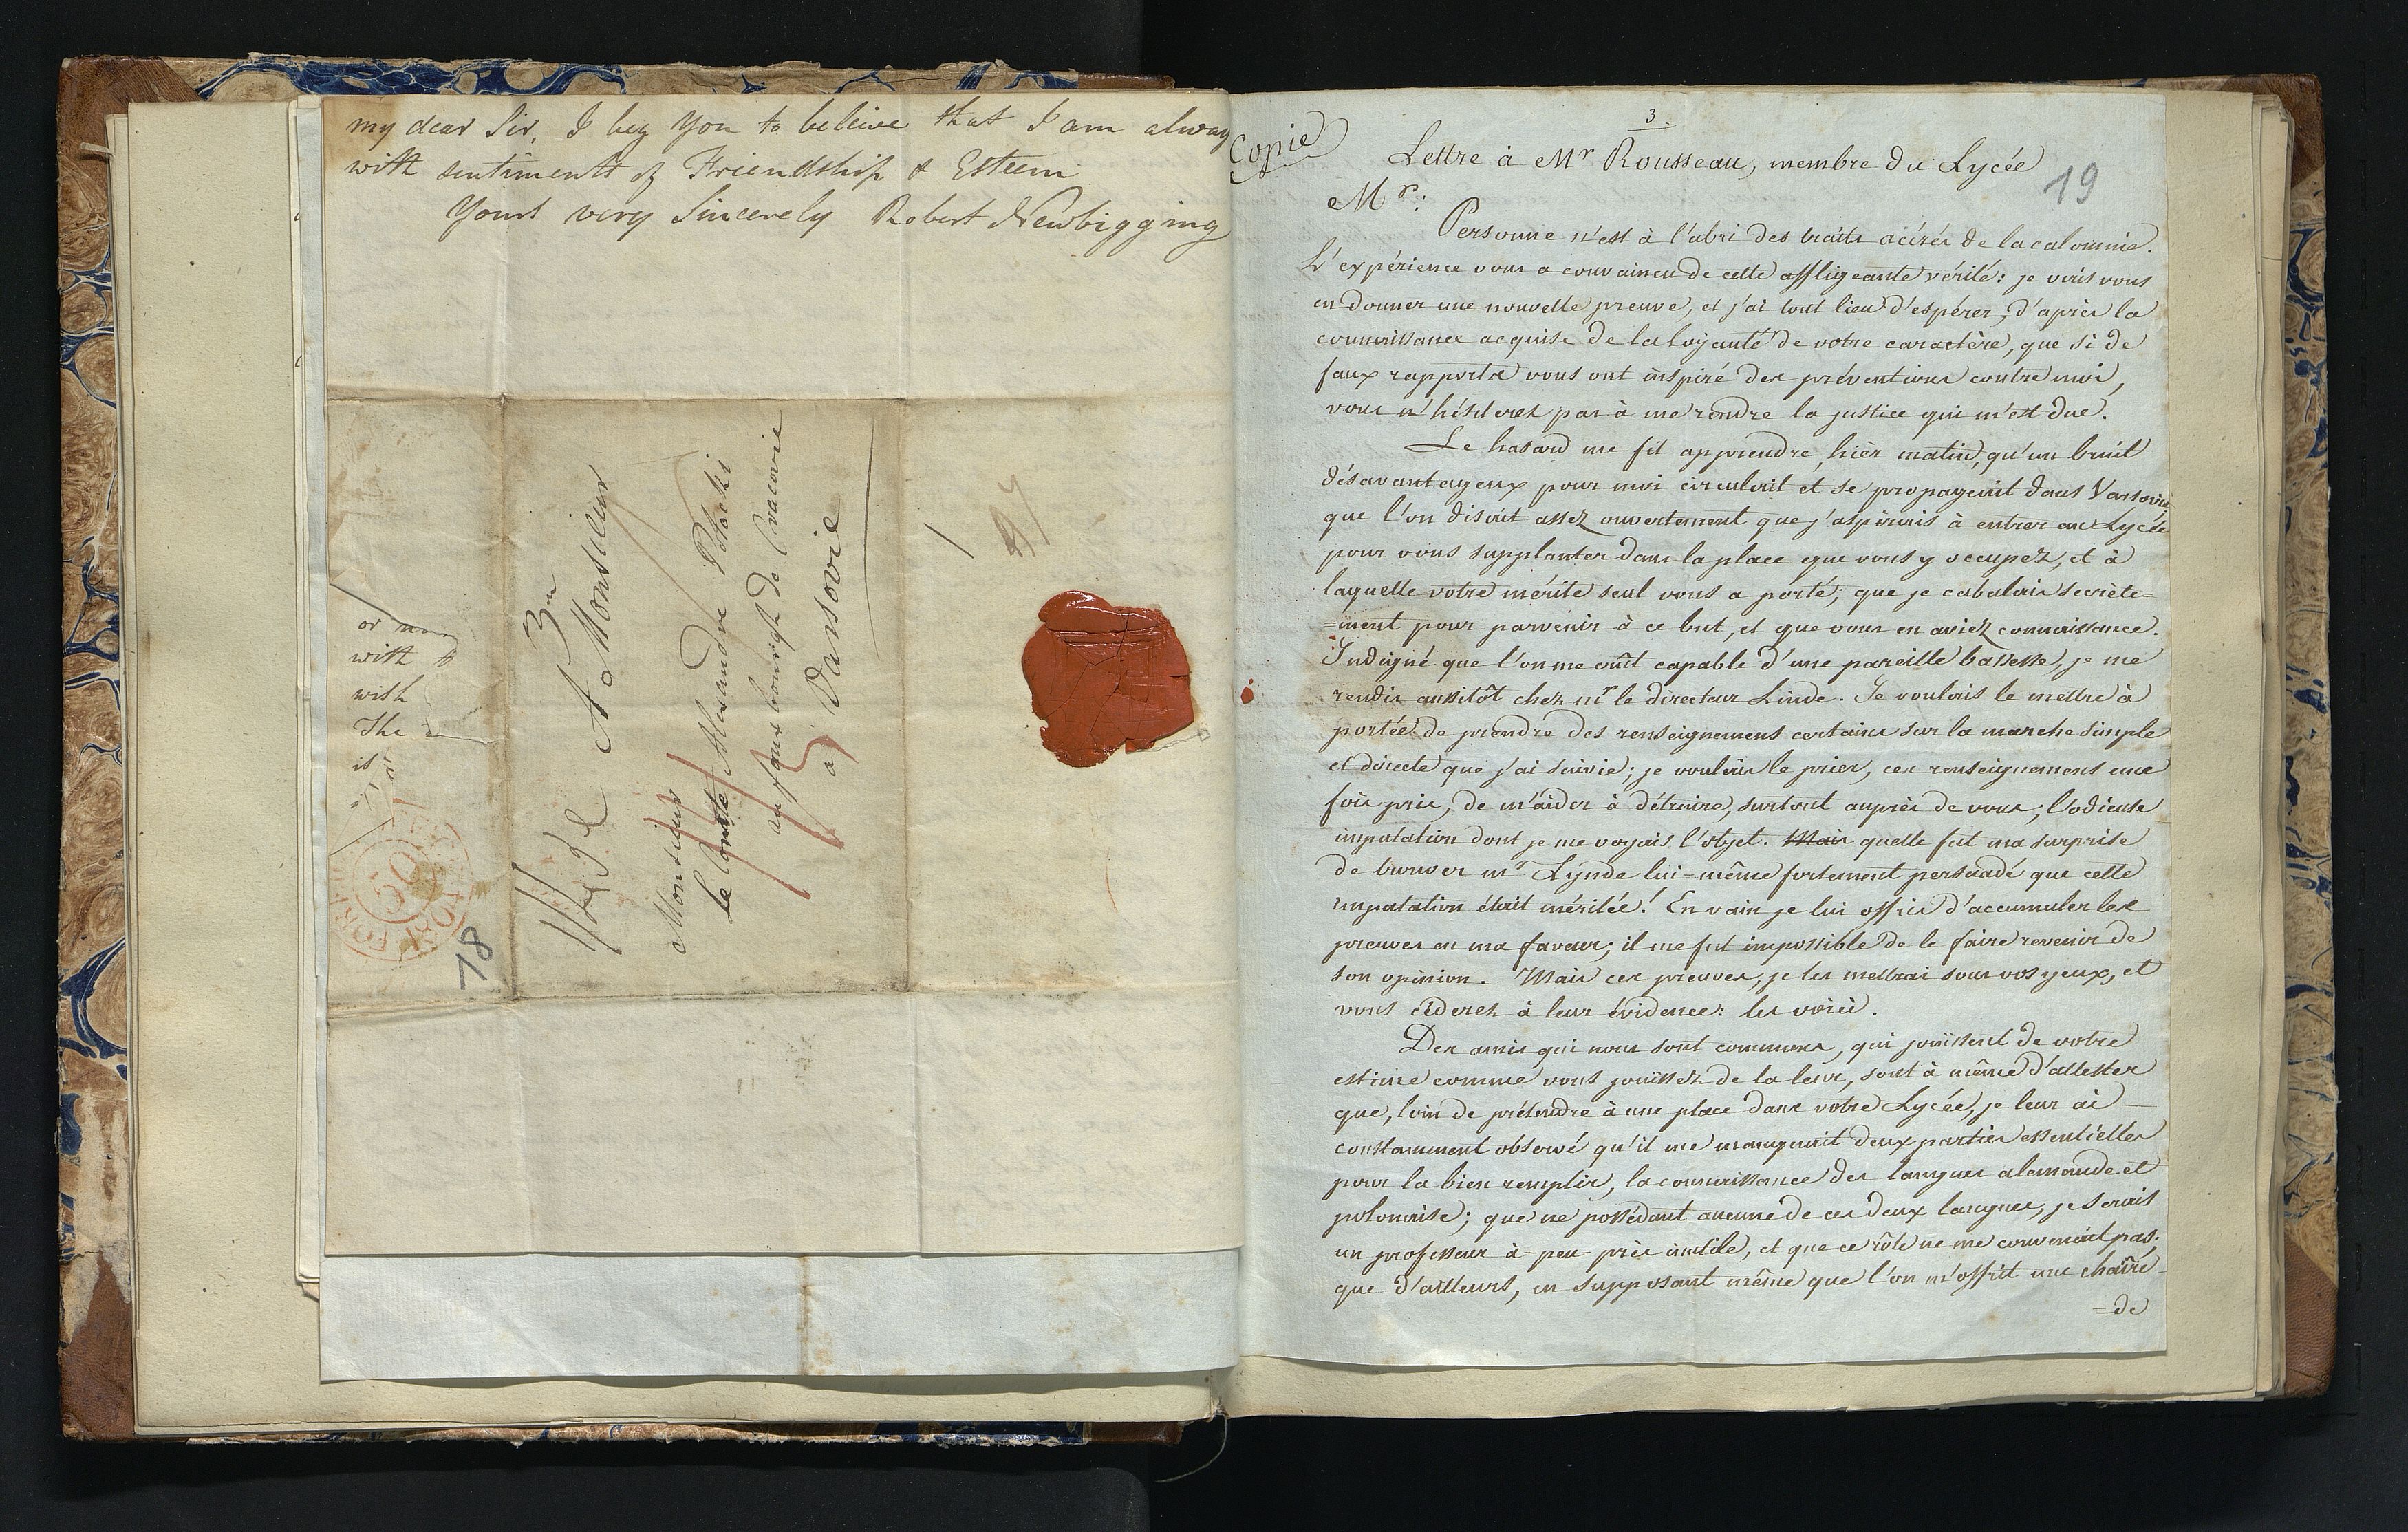 my dear Sir, I beg you to beleive that I am alway
with sentiments of Friendship & Esteem
Yours very Sincerely Robert Newbigging
or
with
with
The
is
A Monsieur
Monsieur
le Comte Alexandre Potocki
au fauxbourgh de Cracovie
a Varsovie
50
18
Copie
3
Lettre à Mr Rousseau, membre du Lycée
19
Mr:
Personne n'est à l'abri des traits acérés de la calomnie.
L'expérience vous a convaincu de cette affligeante vérité: je vais vous
en donner une nouvelle preuve, et j'ai tout lieu d'espérer, d'après la
connaissance acquise de la loyauté de votre caractère, que si de
faux rapports vous ont inspiré des préventions contre moi,
vous n'hésiterez pas à me rendre la justice qui m'est due.
Le hasard me fit apprendre, hièr matin, qu'un bruit
désavantageux pour moi circulait et se propageait dans Varsovie
que l'on disait assez ouvertement que j'aspirais à entrer au Lycée
pour vous supplanter dans la place que vous y occupez, et à
laquelle votre mérite seul vous a porté; que je cabalais secrète=
=ment pour parvenir à ce but, et que vous en aviez connaissance.
Indigné que l'on me crût capable d'une pareille bassesse, je me
rendis aussitôt chez mr le directeur Linde. Je voulais le mettre à
portée de prendre des renseignemens certains sur la marche simple
et directe que j'ai suivie; je voulais le prier, ces renseignemens une
fois pris, de m'aider à détruire, surtout auprès de vous, l'odieuse
imputation dont je me voyais l'objet. Mais quelle fut ma surprise
de trouver mr Lynde lui-même fortement persuadé que cette
imputation était méritée! En vain je lui offris d'accumuler les
preuves en ma faveur; il me fut impossible de le faire revenir de
son opinion. Mais ces preuves, je les mettrai sous vos yeux, et
vous céderez à leur évidence: les voici.
Des amis qui nous sont communs, qui jouissent de votre
estime comme vous jouissez de la leur, sont à même d'attester
que, loin de prétendre à une place dans votre Lycée, je leur ai
constamment observé qu'il me manquait deux parties essentielles
pour la bien remplir, la connaissance des langues alemande et
polonaise; que ne possédant aucune de ces deux langues, je serais
un professeur à-peu-près inutile, et que ce rôle ne me convenait pas;
que d'ailleurs, en supposant même que l'on m'offrit une chaire
=de